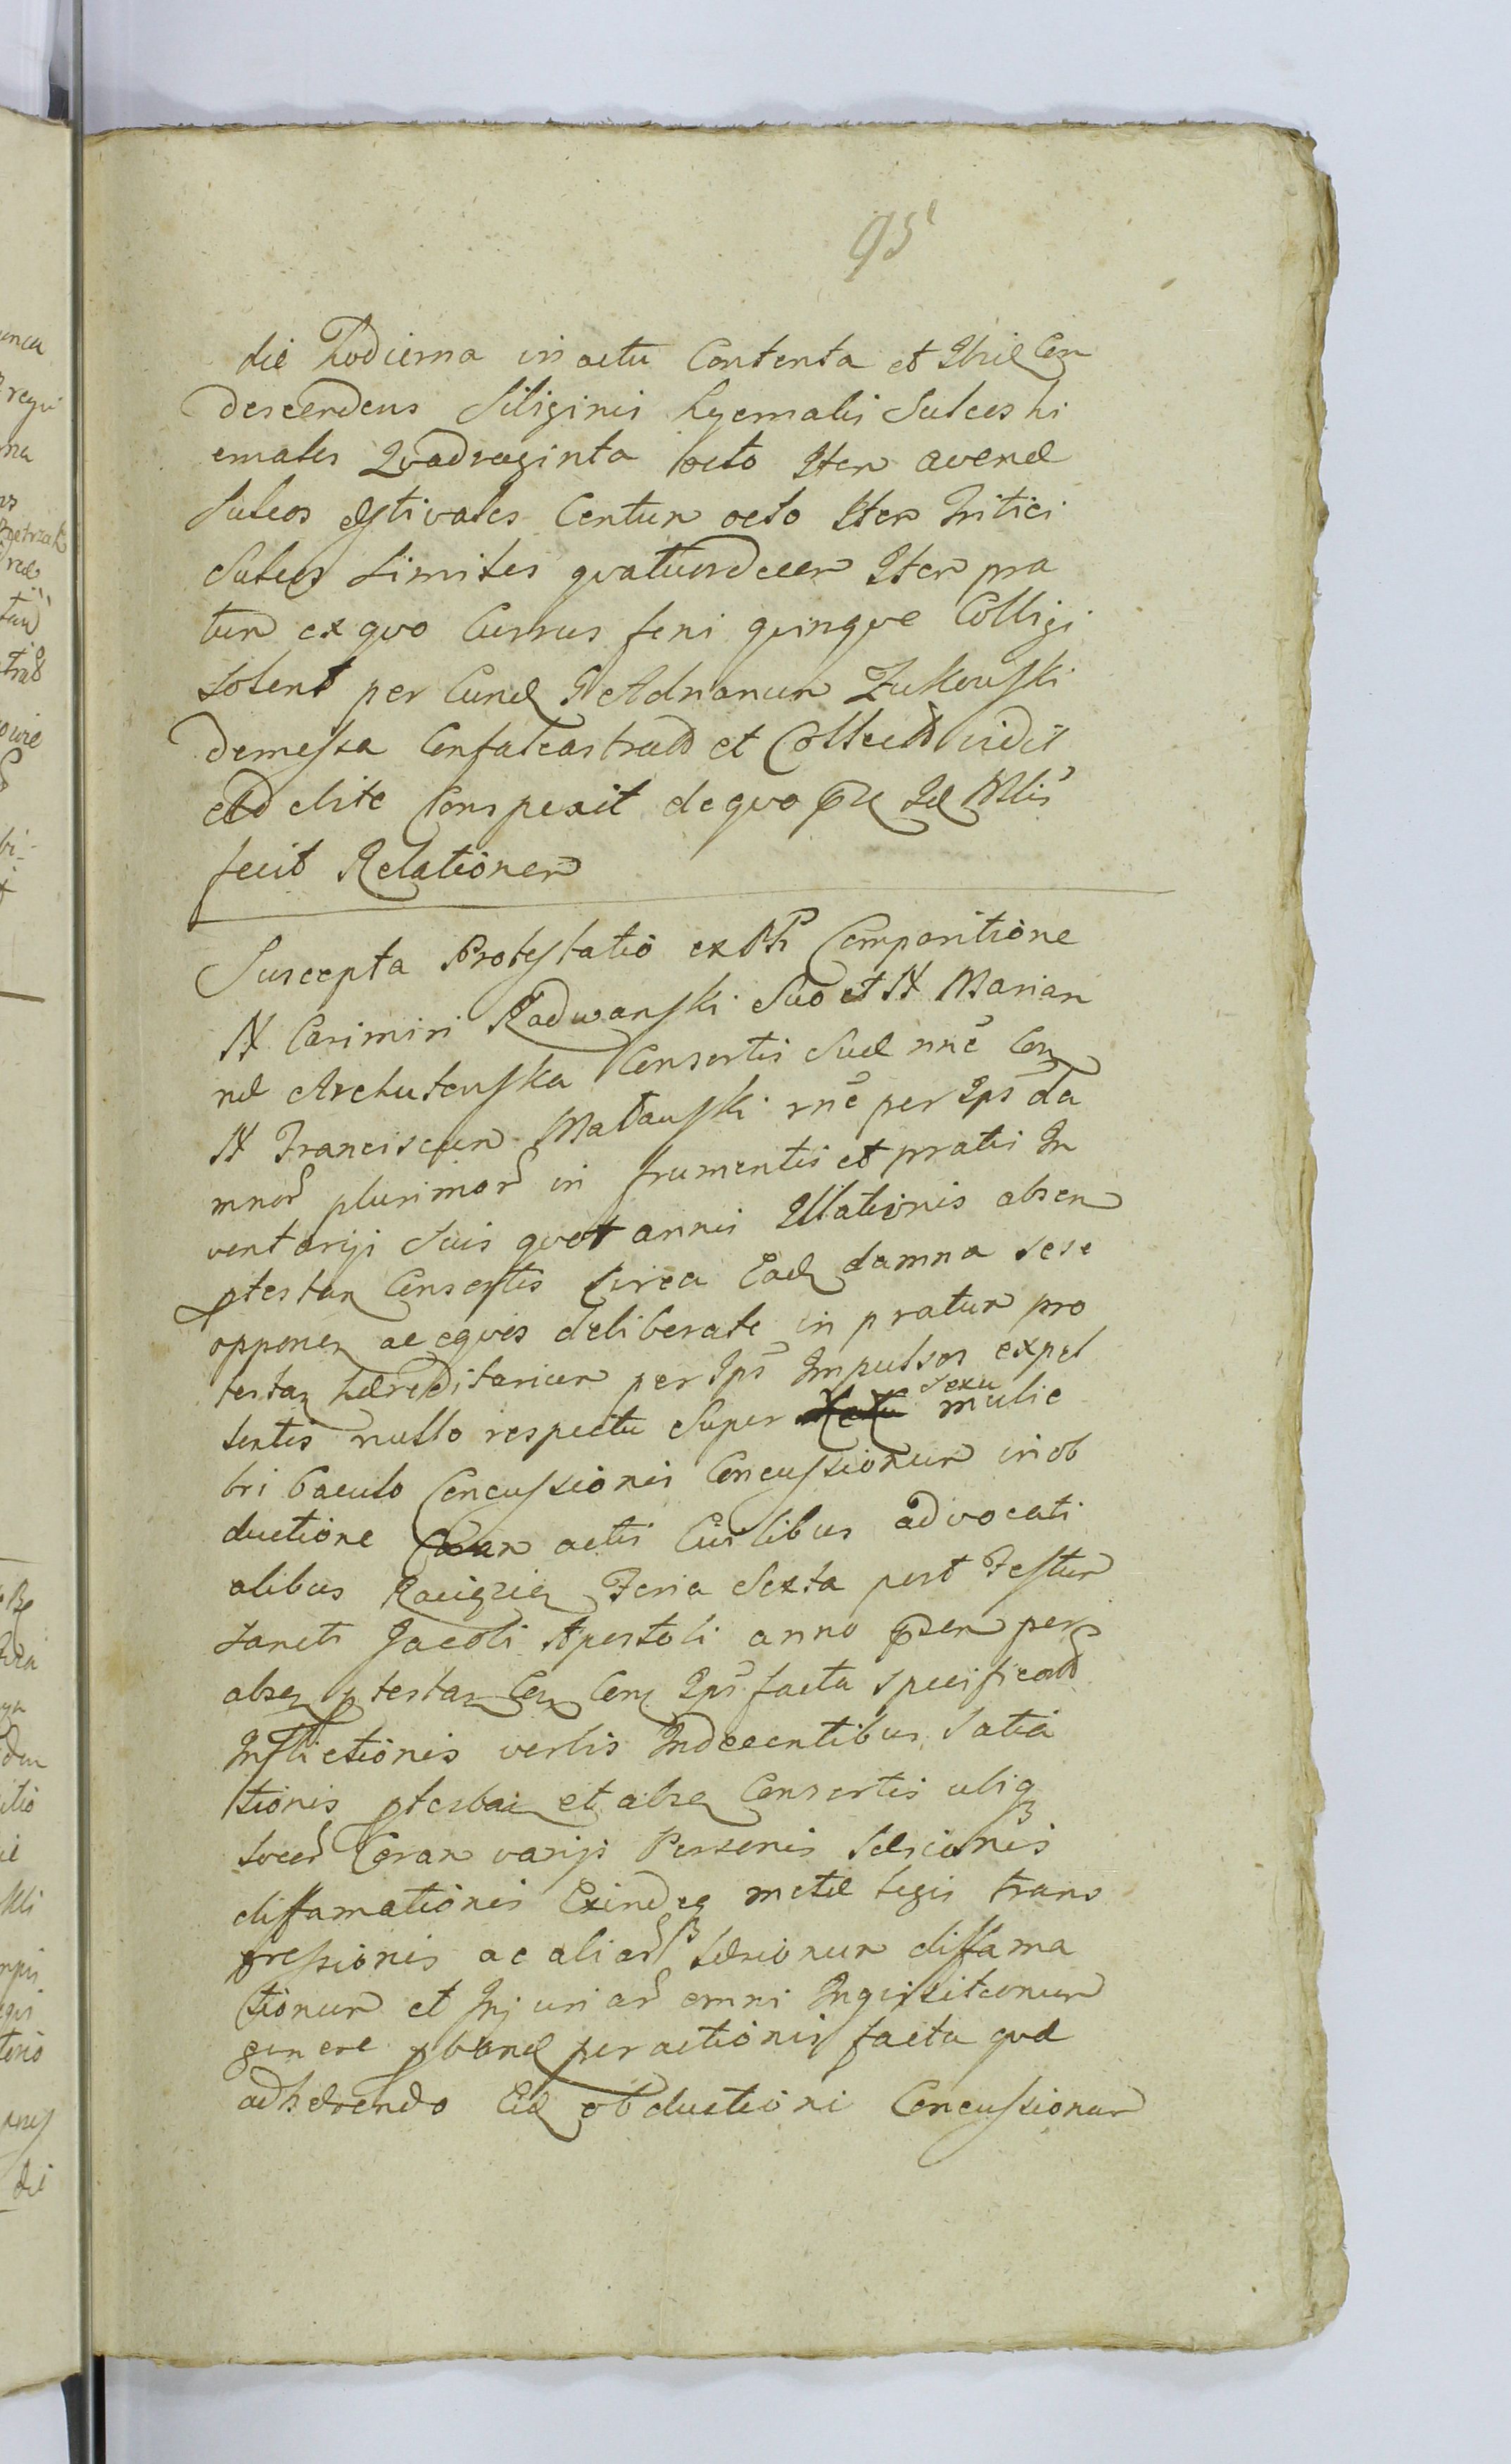 95
die hodierna in actu Contenta et Ibid Con
descendens Siliginis hyemalis Sulcos hi
emales Qvadraginta octo Item avenæ
Sulcos æstivales Centum octo Item Tritici
Sulcos Similes qvatuordecem Item pra
tum ex qvo Currus feni qvinqve Colligi
solent per Eund G Adrianum Zukowski
demessa Confalcastratá et Collecta vidit
ac d Conspexit de qvo
fecit Relationem
Suscepta Protestatio ex Comparitione
N Casimiri Radwanski Suo et N Marian
næ Archutowska Consortis Suæ nnē Con
N Franciscum Małauski nnē per Ips da
mnor plurimor in frumentis et pratis In
ventarÿ Suis qvot annis Illationis absen
ptestan Consortis Circa Ead damna sese
opponen ac eqvos deliberate in pratum pro
testan hæreditarium per Ips Impulsos expel
lentis nullo respectu Super sexu mulie
bri baculo Concussionis Concussionum in ob
ductione Coram actis Civilibus advocati
alibus Raciąziem Feria Sexta post Festum
Sancti Jacobi Apostoli anno psen per
absen ptestan Con Ips facta specificatá
Inflictionis verbis Indecentibus Satia
tionis ptestan et absen Consortis ubiq
locor Coram varÿs Personis Læsionis
diffamationis Exindeq metæ legis trans
gressionis ac aliar læsionum diffama
tionum et Injuriar omni Inqvisitionum
genere pband peractionis facta qvæ
adhærendo Eid obductioni Concussionum